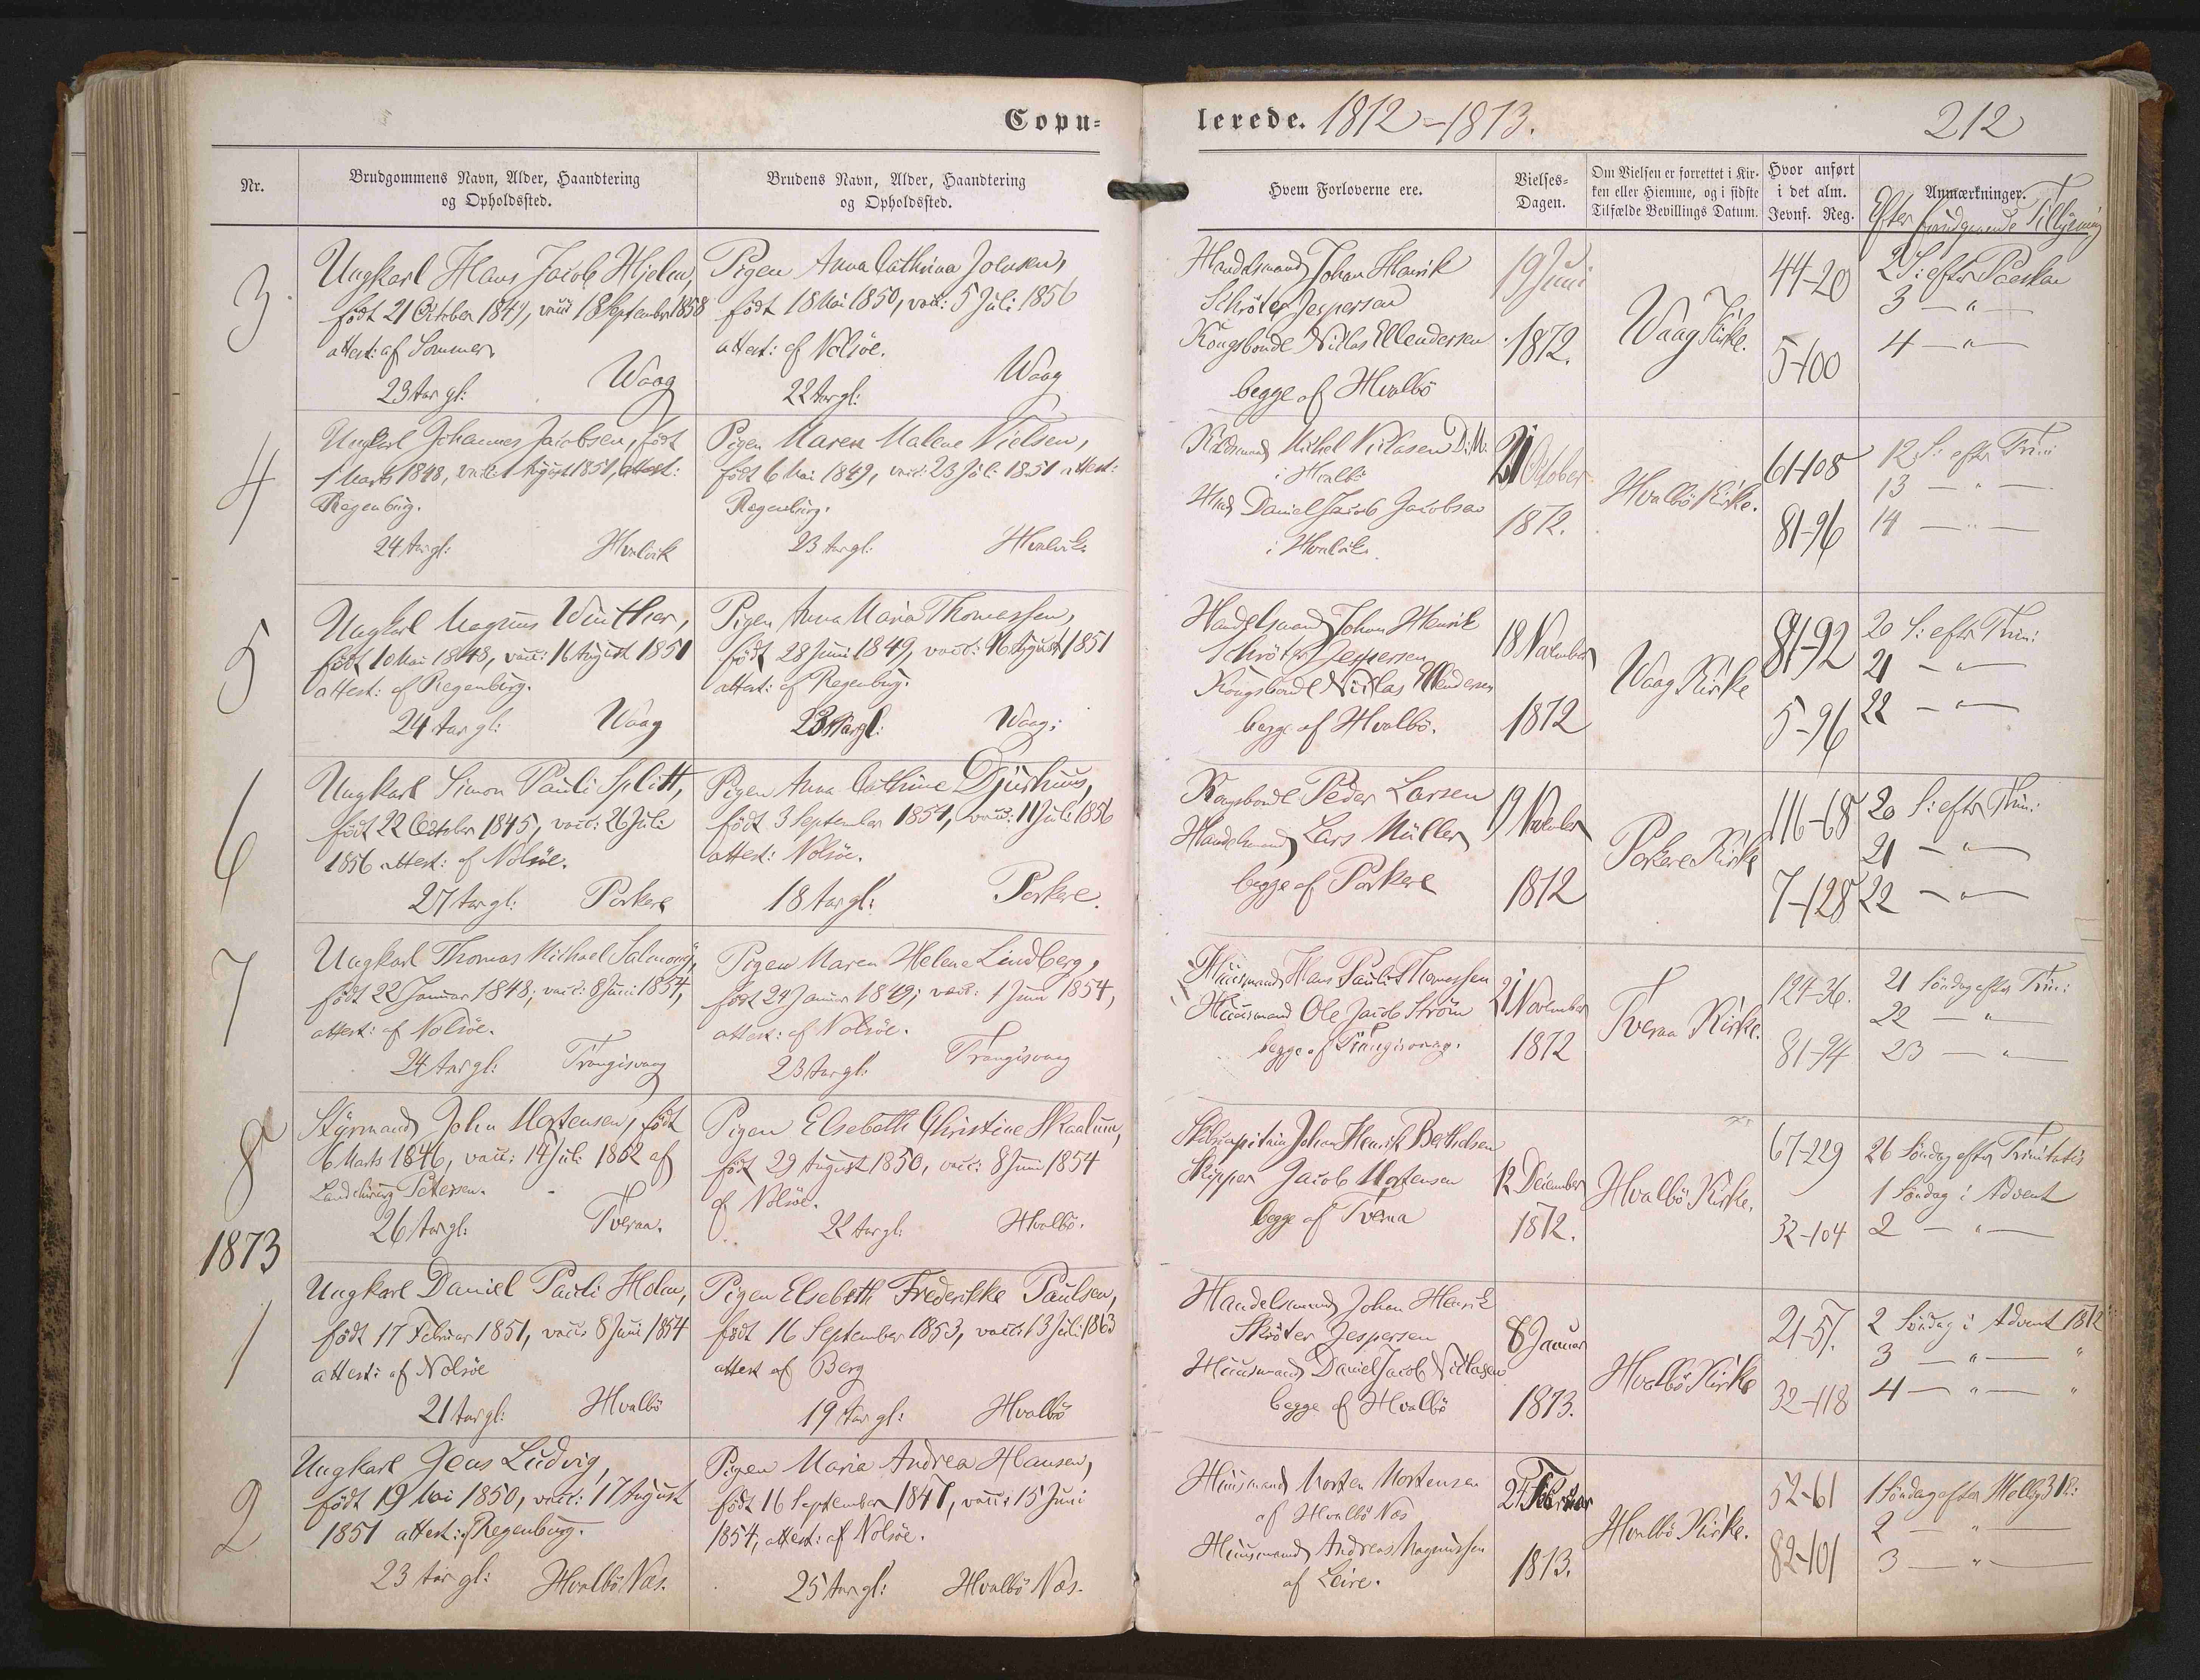 Copu-
lerede. 1872-1873.
212
Nr.
Brudgommens Navn, Alder, Haandtering
og Opholdssted.
Brudens Navn, Alder, Haandtering
og Opholdssted.
Hvem Forloverne ere.
Vielses-
Dagen.
Om Vielsen er forrettet i Kir-
ken eller Hjemme, og i sidste
Tilfælde Bevillings Datum.
Hvor anført
i det alm.
Jevnf. Reg.
Anmærkninger.
Efter Tillysning
3
Ungkarl Hans Jacob Hjelm,
født 21 October 1849, vacc: 18 September 1858
attest: af Sommer.
23 Aar gl: Waag
Pigen Anna Cathrina Joensen,
født 18 Mai 1850, vacc: 5 Juli 1856
attest: af Nolsöe.
22 Aar gl: Waag
Handelsmand Johan Henrik
Schröter Jespersen
Kongsbonde Niclas Ellendersen
begge af Hvalbö
19 Juni
1872.
Waag Kirke.
44-20
5-100
2 S: efter Paaskan
3 — " —
4 — " —
4
Ungkarl Johannes Jacobsen, født
1 Marts 1848, vacc: 1 August 1851, attest:
Regenburg.
24 Aar gl: Hvalvik
Pigen Maren Malene Nielsen,
født 6 Mai 1849, vacc: 23 Juli 1851 attest:
Regenburg.
23 Aar gl: Hvalvik
Michel Niclasen D: M:
i Hvalbö
Daniel Jacob Jacobsen
i Hvalvik.
21 October
1872.
Hvalbö Kirke.
61-108
81-96
12 S: efter Trin:
13 — " —
14 — " —
5
Ungkarl Magnus Winther,
født 10 Mai 1848, vacc: 16 August 1851
attest: af Regenburg.
24 Aar gl: Waag
Pigen Anna Maria Thomassen,
født 28 Juni 1849, vacc: 16 August 1851
attest: af Regenburg.
23 Aar gl: Waag:
Handelsmand Johan Henrik
Schröter Jespersen
Kongsbonde Niclas Ellendersen
begge af Hvalbö.
18 November
1872
Waag Kirke
81-92
5-96
20 S: efter Trin:
21 — " —
22 — " —
6
Ungkarl Simon Pauli Splitt,
født 22 October 1845, vacc: 26 Juli
1856 attest: af Nolsöe.
27 Aar gl: Porkere
Pigen Anna Cathrine Djurhuus,
født 3 September 1854, vacc: 11 Juli 1856
attest: Nolsöe.
18 Aar gl: Porkere.
Kongsbonde Peder Larsen
Handelsmand Lars Müller
begge af Porkere
19 November
1872
Porkere Kirke
116-68
7-128
20 S: efter Trin:
21 — " —
22 — " —
7
Ungkarl Thomas Michael Salmony,
født 22 Januar 1848, vacc: 8 Juni 1854,
attest: af Nolsöe.
24 Aar gl: Trangisvaag
Pigen Maren Helene Lindberg,
født 24 Januar 1849, vacc: 1 Juni 1854,
attest: af Nolsöe.
23 Aar gl: Trangisvaag
Huusmand Hans Pauli Thomassen
Huusmand Ole Jacob Ström
begge af Trangisvaag.
21 November
1872
Tveraa Kirke.
124-36.
81-94
21 Söndag efter Trin:
22 — " —
23 — " —
8
Styrmand John Mortensen, født
6 Marts 1846, vacc: 14 Juli 1862 af
Landchirurg Petersen.
26 Aar gl: Tveraa.
Pigen Elsebeth Christine Skaalum,
født 29 August 1850, vacc: 8 Juni 1854
af Nolsöe.
22 Aar gl: Hvalbö.
Skibscapitain Johan Henrik Berthelsen
Skipper Jacob Mortensen
begge af Tveraa
12 December
1872.
Hvalbö Kirke.
67-229
32-104
26 Söndag efter Trinitatis
1 Söndag i Advent
2 — " —
1873
1
Ungkarl Daniel Pauli Holm,
født 17 Februar 1851, vacc: 8 Juni 1854
attest: af Nolsöe
21 Aar gl: Hvalbö
Pigen Elsebeth Frederikke Paulsen,
født 16 September 1853, vacc: 13 Juli 1863
attest af Berg
19 Aar gl: Hvalbö
Handelsmand Johan Henrik
Skröter Jespersen
Huusmand Daniel Jacob Niclasen
begge af Hvalbö
8 Januar
1873.
Hvalbö Kirke
21-57.
32-118
2 Söndag i Advent 1872
3 — " — "
4 — " — "
2
Ungkarl Jens Ludvig,
født 19 Mai 1850, vacc: 17 August
1851 attest: af Regenburg.
23 Aar gl: Hvalbö Næs.
Pigen Maria Andrea Hansen,
født 16 September 1847, vacc: 15 Juni
1854, attest: af Nolsöe.
25 Aar gl: Hvalbö Næs.
Huusmand Morten Mortensen
af Hvalbö Næs
Huusmand Andreas Magnussen
af Leire.
24 Februar
1873.
Hvalbö Kirke.
52-61
82-101
1 Söndag efter Hellig 3 K:
2 — " —
3 — " —